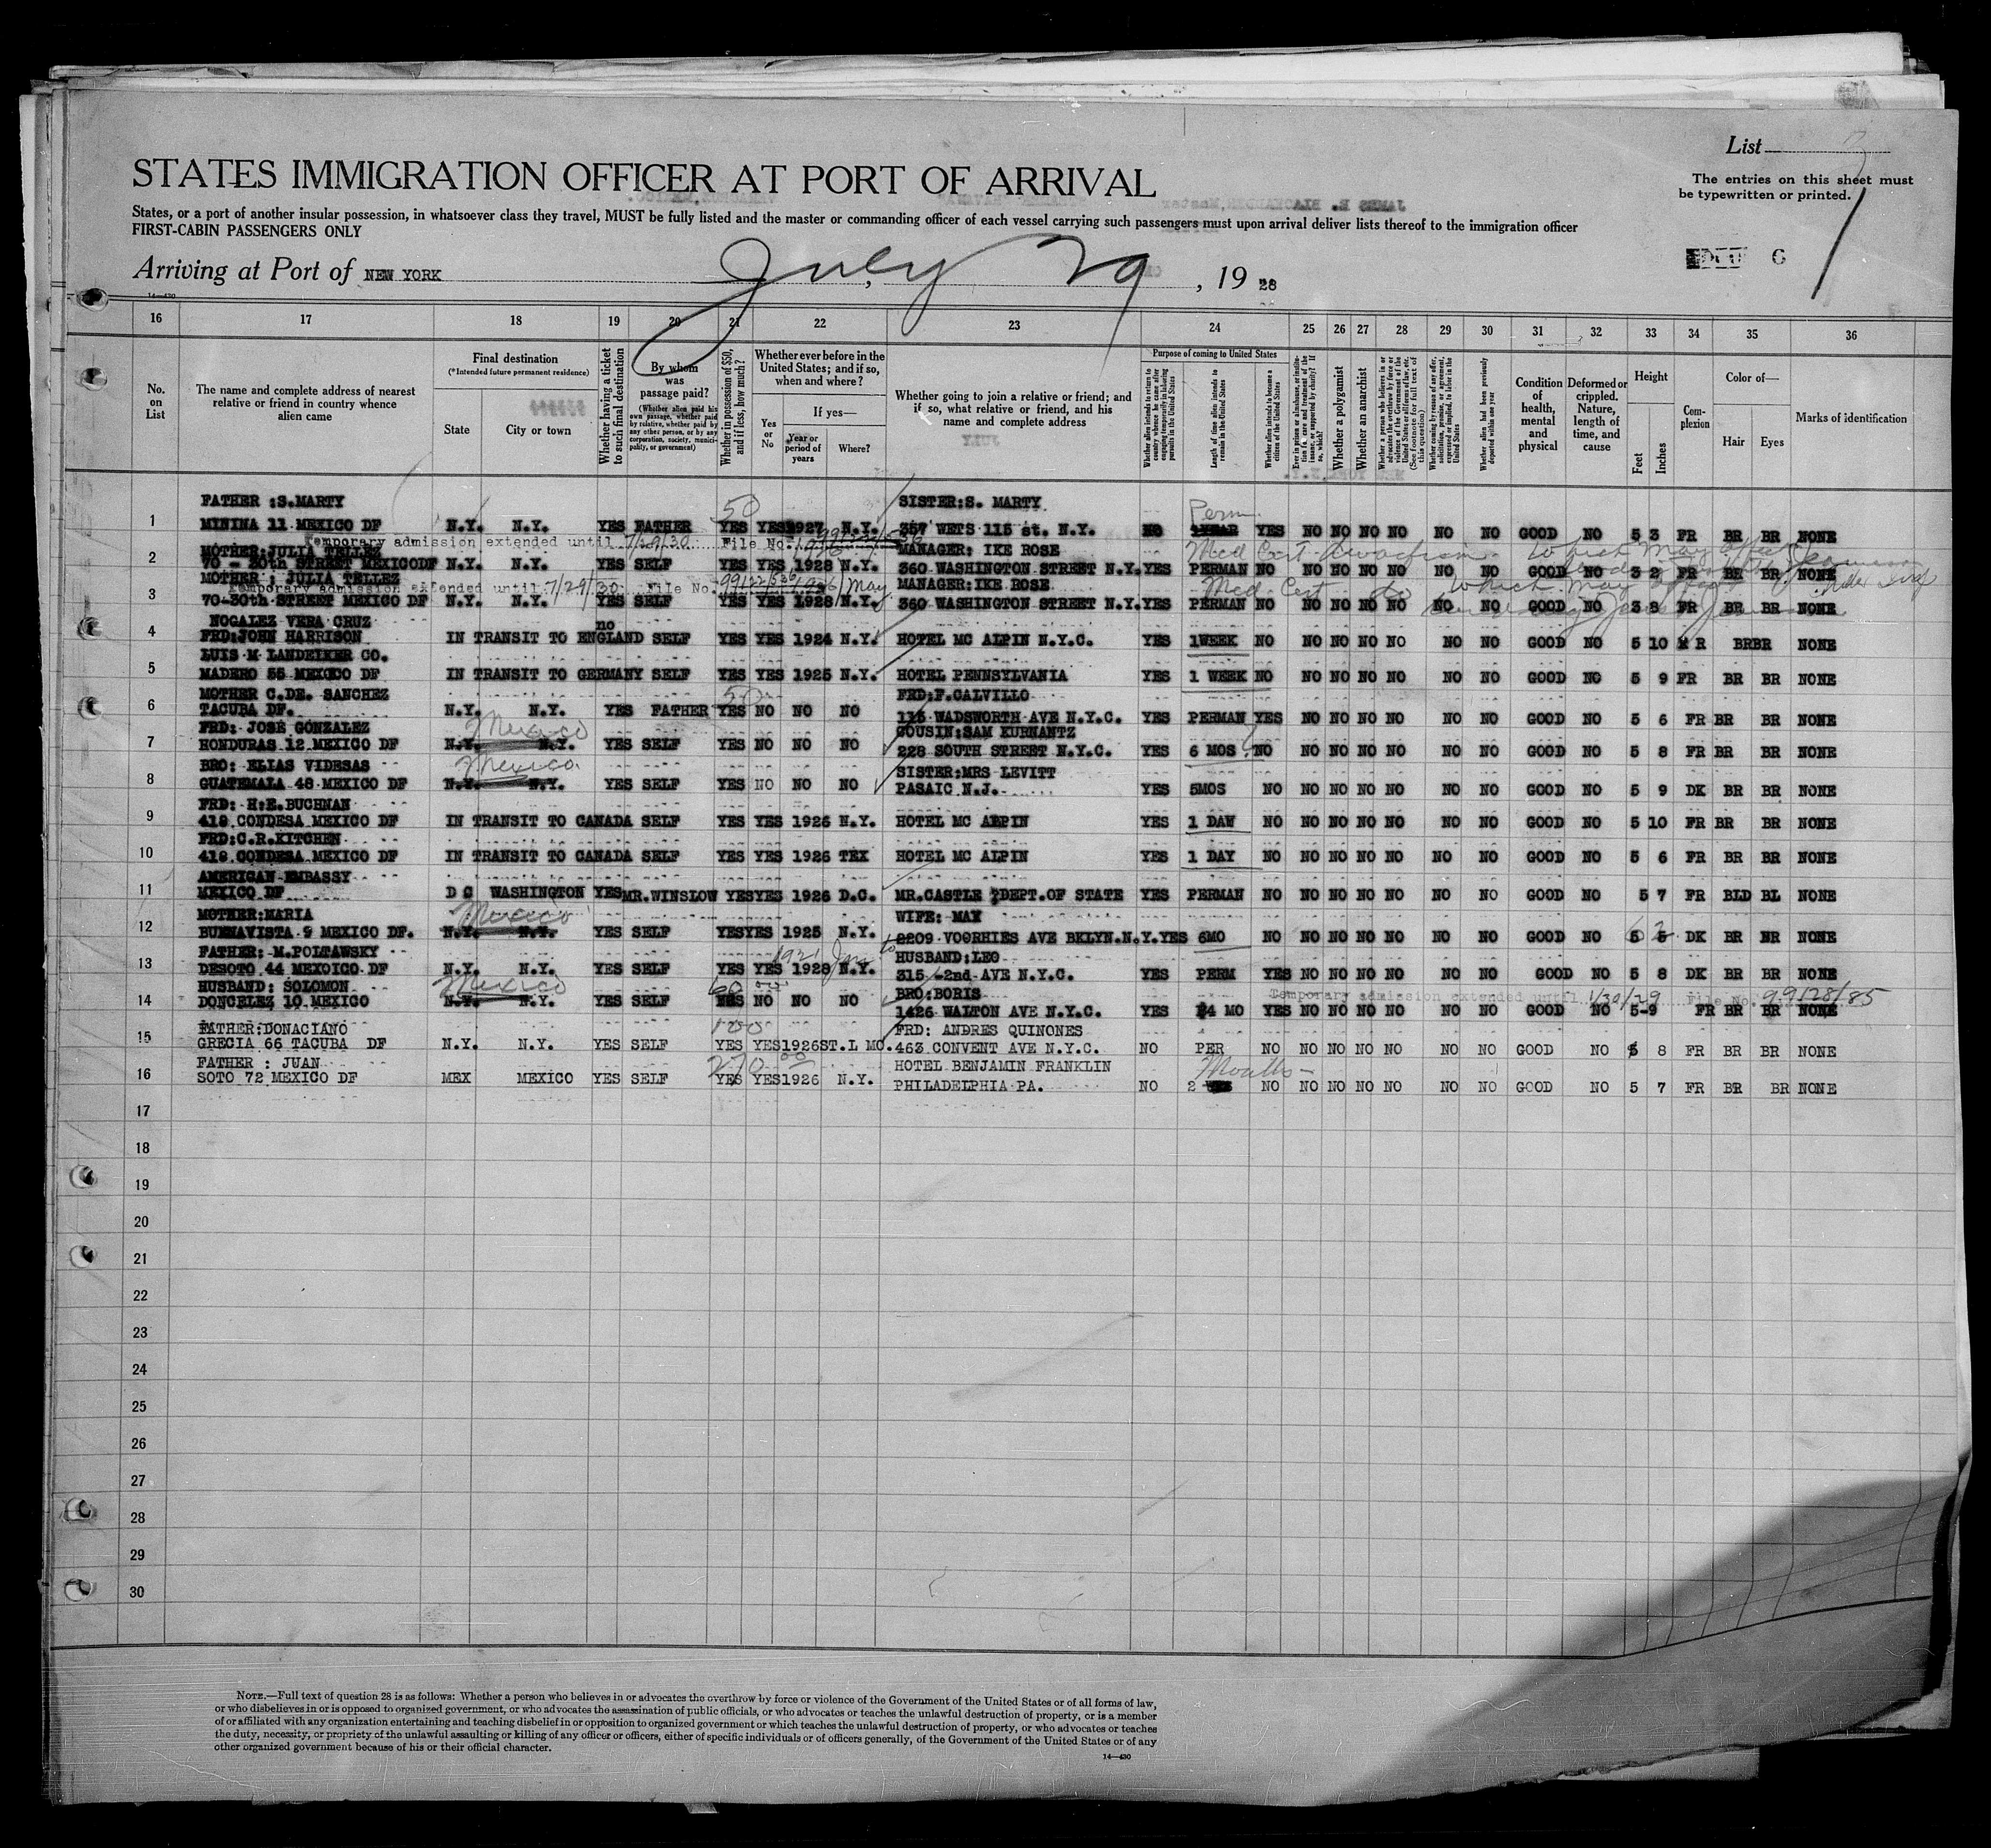 List 7
The entries on this sheet must
be typewritten or printed.
STATES IMMIGRATION OFFICER AT PORT OF ARRIVAL
States, or a port of another insular possession, in whatsoever class they travel, MUST be fully listed and the master or commanding officer of each vessel carrying such passengers must upon arrival deliver lists thereof to the immigration officer
FIRST-CABIN PASSENGERS ONLY
Arriving at Port of NEW YORK July 29, 1928
14—430
16 17 18 19 20 21 22 23 24 25 26 27 28 29 30 31 32 33 34 35 36
No. on List
The name and complete address of nearest relative or friend in country whence alien came
Final destination
(*Intended future permanent residence)
State
City or town
Whether having a ticket to such final destination
By whom was passage paid?
(Whether alien paid his own passage, whether paid by relative, whether paid by any other person, or by any corporation, society, municipality, or government)
Whether in possession of $50, and if less, how much?
Whether ever before in the United States; and if so, when and where?
Yes or No
If yes—
Year or period of years
Where?
Whether going to join a relative or friend; and if so, what relative or friend, and his name and complete address
Purpose of coming to United States
Whether alien intends to return to country whence he came after engaging temporarily in laboring pursuits in the United States
Length of time alien intends to remain in the United States
Whether alien intends to become a citizen of the United States
Ever in prison or almshouse, or institution for care and treatment of the insane, or supported by charity? If so, which?
Whether a polygamist
Whether an anarchist
Whether a person who believes in or advocates the overthrow by force or violence of the Government of the United States or all forms of law, etc. (See footnote for full text of this question)
Whether coming by reason of any offer, solicitation, promise, or agreement, expressed or implied, to labor in the United States
Whether alien had been previously deported within one year
Condition of health, mental and physical
Deformed or crippled. Nature, length of time, and cause
Height
Feet
Inches
Complexion
Color of—
Hair
Eyes
Marks of identification
FATHER :S.MARTY 50 SISTER:S. MARTY Perm
1 MININA 11 MEXICO DF N.Y. N.Y. YES FATHER YES YES 1927 N.Y. 357 WETS 115 st. N.Y. NO 1YEAR YES NO NO NO NO NO NO GOOD NO 5 3 FR BR BR NONE
Temporary admission extended until 7/29/30 File No.
MOTHER:JULIA TELLEZ MANAGER: IKE ROSE Med Cert which may affect
2 70 - 30th STREET MEXICODF N.Y. N.Y. YES SELF YES YES 1928 N.Y. 360 WASHINGTON STREET N.Y. YES PERMAN NO NO NO NO NO NO NO GOOD NO 3 2 FR BR BR NONE
MOTHER : JULIA TELLEZ MANAGER:IKE ROSE
Temporary admission extended until 7/29/30 File No. May Med Cert which may affect
3 70-30th STREET MEXICO DF N.Y. N.Y. YES SELF YES YES 1928 N.Y. 360 WASHINGTON STREET N.Y. YES PERMAN NO NO NO NO NO NO NO GOOD NO 3 8 FR BR BR NONE
NOGALEZ VERA CRUZ no
4 FRD:JOHN HARRISON IN TRANSIT TO ENGLAND SELF YES YES 1924 N.Y. HOTEL MC ALPIN N.Y.C. YES 1WEEK NO NO NO NO NO NO NO GOOD NO 5 10 R BRBR NONE
LUIS M LANDEIKER CO.
5 MADERO 55 MEXICO DF IN TRANSIT TO GERMANY SELF YES YES 1925 N.Y. HOTEL PENNSYLVANIA YES 1 WEEK NO NO NO NO NO NO NO GOOD NO 5 9 FR BR BR NONE
MOTHER C.DE. SANCHEZ 50 FRD:F.CALVILLO
6 TACUBA DF. N.Y. N.Y. YES FATHER YES NO NO NO 115 WADSWORTH AVE N.Y.C. YES PERMAN YES NO NO NO NO NO NO GOOD NO 5 6 FR BR BR NONE
FRD: JOSE GONZALEZ Mexico COUSIN:SAM KURNANTZ
7 HONDURAS 12 MEXICO DF N.Y. N.Y. YES SELF YES NO NO NO 228 SOUTH STREET N.Y.C. YES 6 MOS NO NO NO NO NO NO NO GOOD NO 5 8 FR BR BR NONE
BRO: ELIAS VIDESAS Mexico SISTER:MRS LEVITT
8 GUATEMALA 48 MEXICO DF N.Y. N.Y. YES SELF YES NO NO NO PASAIC N.J. YES 5MOS NO NO NO NO NO NO NO GOOD NO 5 9 DK BR BR NONE
FRD: H.E.BUCHNAN
9 418 CONDESA MEXICO DF IN TRANSIT TO CANADA SELF YES YES 1926 N.Y. HOTEL MC ALPIN YES 1 DAW NO NO NO NO NO NO NO GOOD NO 5 10 FR BR BR NONE
FRD:C.R.KITCHEN
10 418 CONDESA MEXICO DF IN TRANSIT TO CANADA SELF YES YES 1926 TEX HOTEL MC ALPIN YES 1 DAY NO NO NO NO NO NO NO GOOD NO 5 6 FR BR BR NONE
AMERICAN EMBASSY
11 MEXICO DF D C WASHINGTON YES MR.WINSLOW YES YES 1926 D.C. MR.CASTLE DEPT.OF STATE YES PERMAN NO NO NO NO NO NO NO GOOD NO 5 7 FR BLD BL NONE
MOTHER:MARIA Mexico WIFE: MAY
12 BUENAVISTA 9 MEXICO DF. N.Y. N.Y. YES SELF YES YES 1925 N.Y. 2209 VOORHIES AVE BKLYN.N.Y. YES 6MO NO NO NO NO NO NO NO GOOD NO 5 DK BR BR NONE
FATHER: M.POLTAWSKY 1921 Jan to HUSBAND:LEO
13 DESOTO 44 MEXOICO DF N.Y. N.Y. YES SELF YES YES 1928 N.Y. 315 -2nd AVE N.Y.C. YES PERM YES NO NO NO NO NO NO GOOD NO 5 8 DK BR BR NONE
HUSBAND: SOLOMON Mexico 60 00 BRO:BORIS Temporary admission extended until 1/30/29 File No. 99128/85
14 DONCELEZ 10 MEXICO N.Y. N.Y. YES SELF YES NO NO NO 1426 WALTON AVE N.Y.C. YES 4 MO YES NO NO NO NO NO NO GOOD NO 5-9 FR BR BR NONE
FATHER:DONACIANO 100 FRD: ANDRES QUINONES
15 GRECIA 66 TACUBA DF N.Y. N.Y. YES SELF YES YES 1926 ST.L MO. 463 CONVENT AVE N.Y.C. NO PER NO NO NO NO NO NO NO GOOD NO 5 8 FR BR BR NONE
FATHER : JUAN 270 00 HOTEL BENJAMIN FRANKLIN Months
16 SOTO 72 MEXICO DF MEX MEXICO YES SELF YES YES 1926 N.Y. PHILADELPHIA PA. NO 2 NO NO NO NO NO NO NO GOOD NO 5 7 FR BR BR NONE
17
18
19
20
21
22
23
24
25
26
27
28
29
30
NOTE.—Full text of question 28 is as follows: Whether a person who believes in or advocates the overthrow by force or violence of the Government of the United States or of all forms of law,
or who disbelieves in or is opposed to organized government, or who advocates the assassination of public officials, or who advocates or teaches the unlawful destruction of property, or is a member
of or affiliated with any organization entertaining and teaching disbelief in or opposition to organized government or which teaches the unlawful destruction of property, or who advocates or teaches
the duty, necessity, or propriety of the unlawful assaulting or killing of any officer or officers, either of specific individuals or of officers generally, of the Government of the United States or of any
other organized government because of his or their official character.
14—430